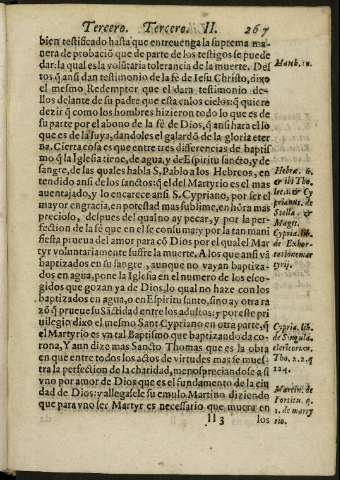 Tercero. Tercero. II. 267
bien testificado hasta que entreuenga la suprema ma
nera de probaciõ que de parte de los testigos se puede
dar: la qual es la voluntaria tolerancia de la muerte. Des
tos, q̃ ansi dan testimonio de la fè de Iesu Christo, dixo
el mesmo Redemptor que el dara testimonio de-
llos delante de su padre que esta en los cielos: q̃ quiere
dezir q̃ como los hombres hizieron todo lo que es de
su parte por el abono de la fè de Dios, q̃ ansi hara el lo
que es de la suya, dandoles el galardõ de la gloria eter
na. Cierta cosa es que entre tres differencias de baptis
mo q̃ la Iglesia tiene, de agua, y de Espiritu sancto, y de
sangre, de las quales habla S. Pablo a los Hebreos, en
tendido ansi de los sanctos: q̃ el del Martyrio es el mas
auentajado, y lo encarece ansi S. Cypriano, por ser el
mayor en gracia, en potestad mas sublime, en hõra mas
precioso, despues del qual no ay pecar, y por la per-
fection de la fè que en el se consuma y por la tan mani
fiesta prueua del amor para cõ Dios por el qual el Mar
tyr voluntariamente sufre la muerte. A los que ansi vã
baptizados en su sangre, aunque no vayan baptiza-
dos en agua, pone la Iglesia en el numero de los esco-
gidos que gozan ya de Dios, lo qual no haze con los
baptizados en agua, o en Espiritu santo, sino ay otra ra
zõ q̃ prueue su Sãctidad entre los adultos: y por este pri
uilegio dixo el mesmo Sant Cypriano en otra parte, q̃
el Martyrio es vn tal Baptismo que baptizando da co
rona, Y aun dixo mas Sancto Thomas que es la obra
en que entre todos los actos de virtudes mas se mues
tra la perfection de la charidad, menospreciandose a si
vno por amor de Dios que es el fundamento de la ciu
dad de Dios: y allegasele su emulo Martino diziendo
que para vno ser Martyr es necessario que muera en
Ll 3 los
Matth. 10.
Hebræ. 6.
& ibi Tho.
Cyprianus. de
Stella. &
Magis.
Cypria. lib.
de Exhor-
tatione mar
tyrij.
Cypria. lib.
de Singula.
clericorum.
Tho. 2.2. q
124.
Martin. de
Fortitu. q.
1. de marty
rio.